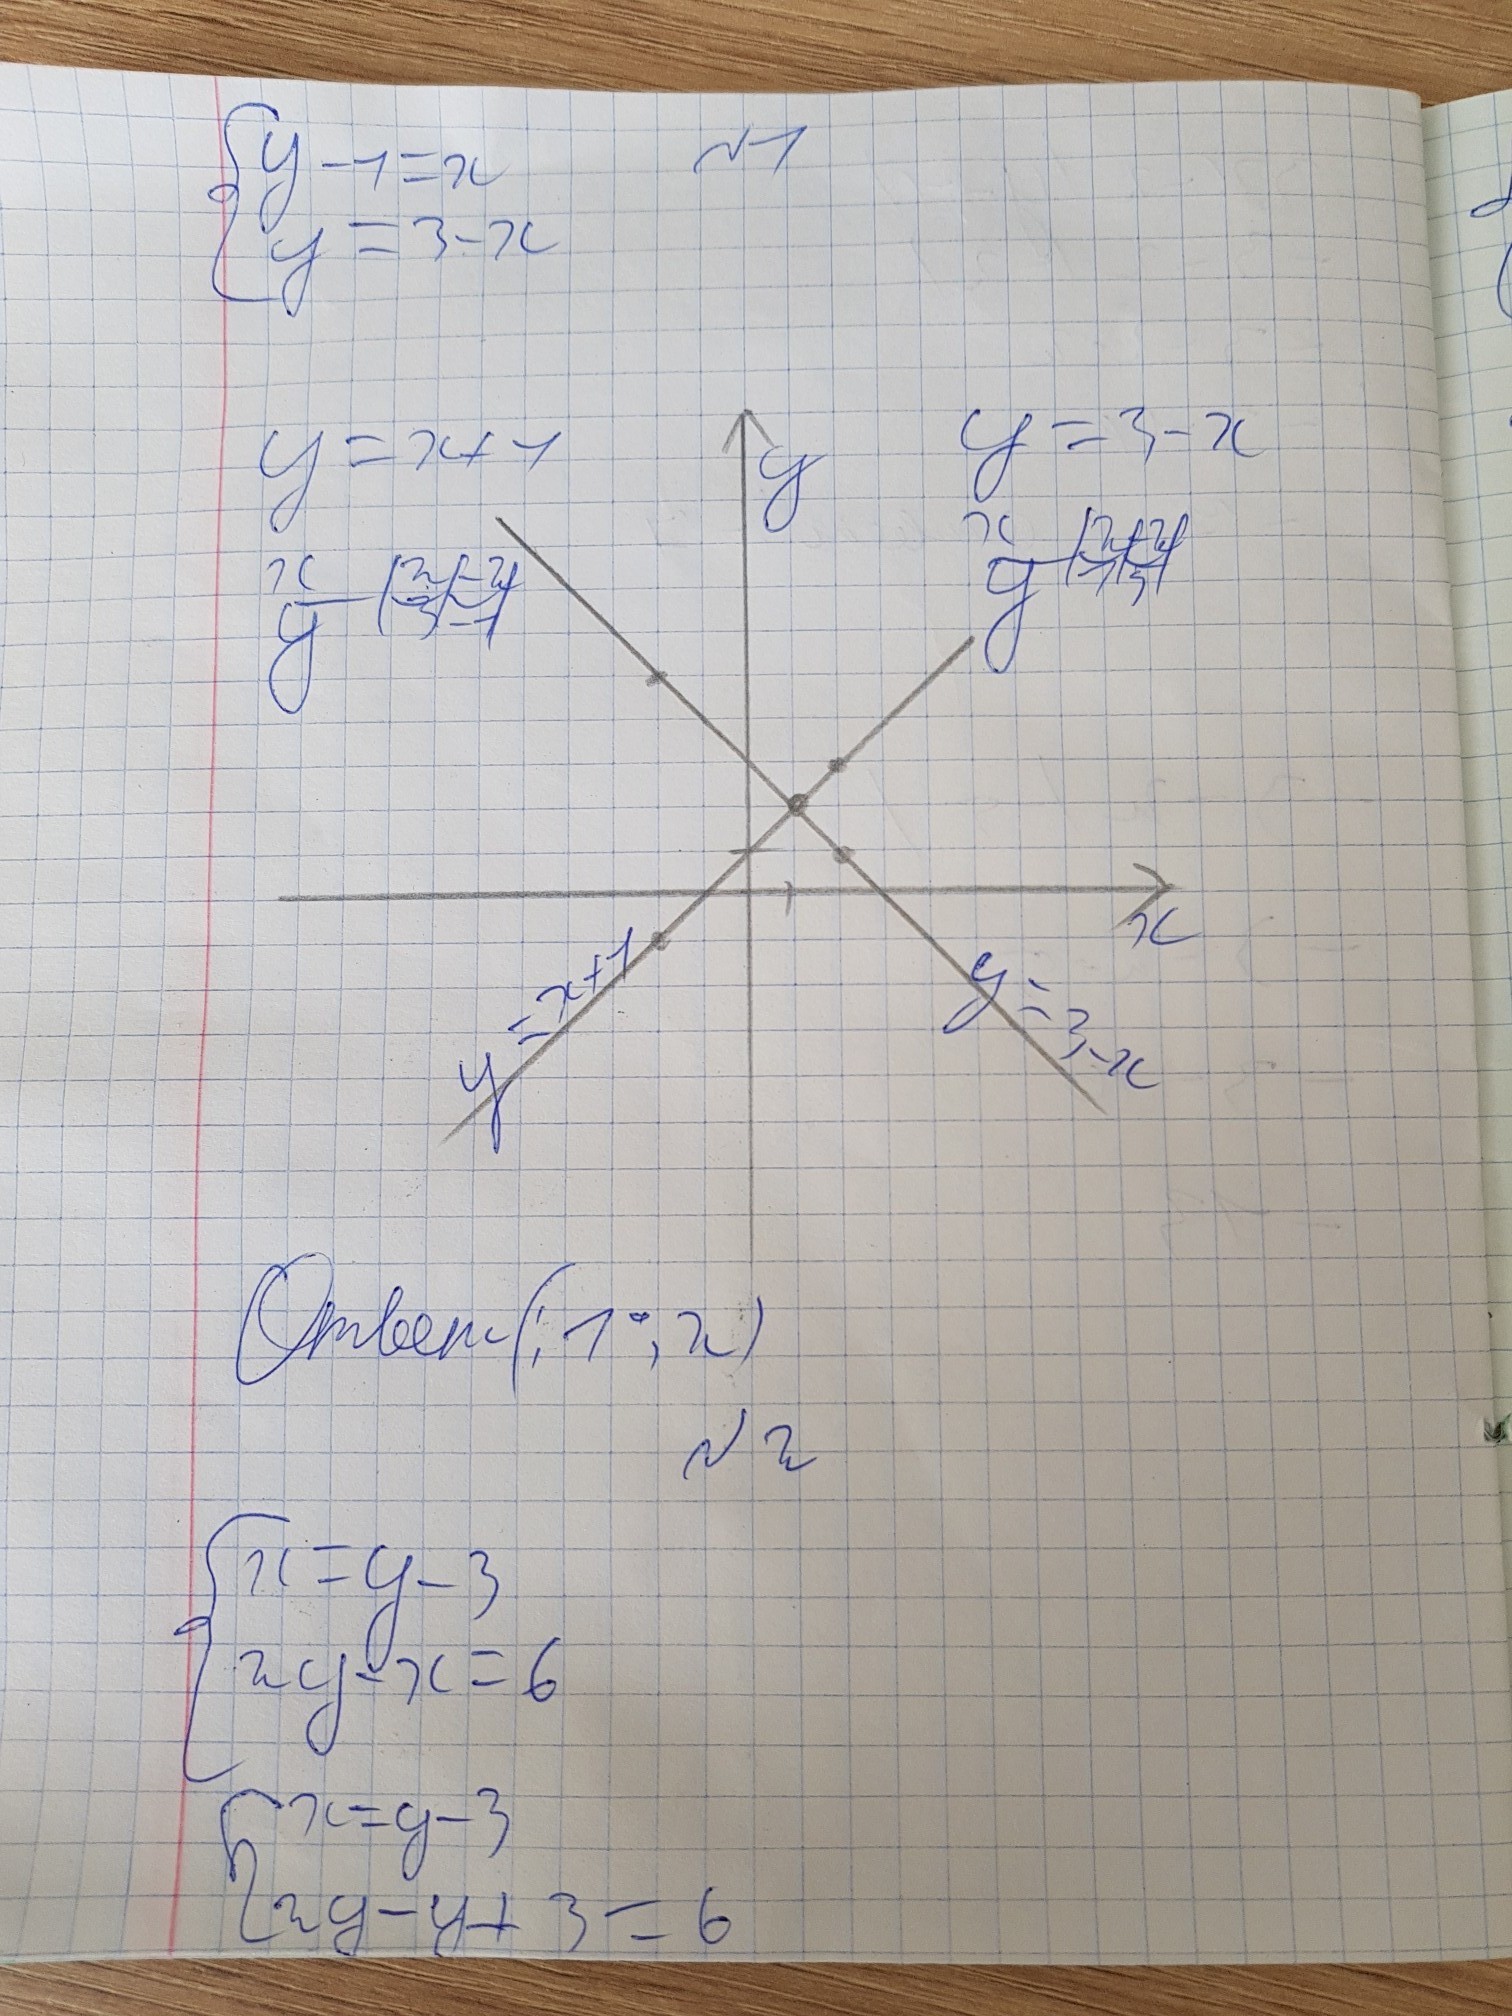 №1
{y-1=x
y=3-x
y=x+1
x | 2 | -2 |
y | 3 | -1 |
y
y=3-x
x | 2 | -2 |
x
y=x+1
y=3-x
Ответ(: 1°; 2)
№2
{x=y-3
2y-x=6
{x=y-3
2y-y+3=6